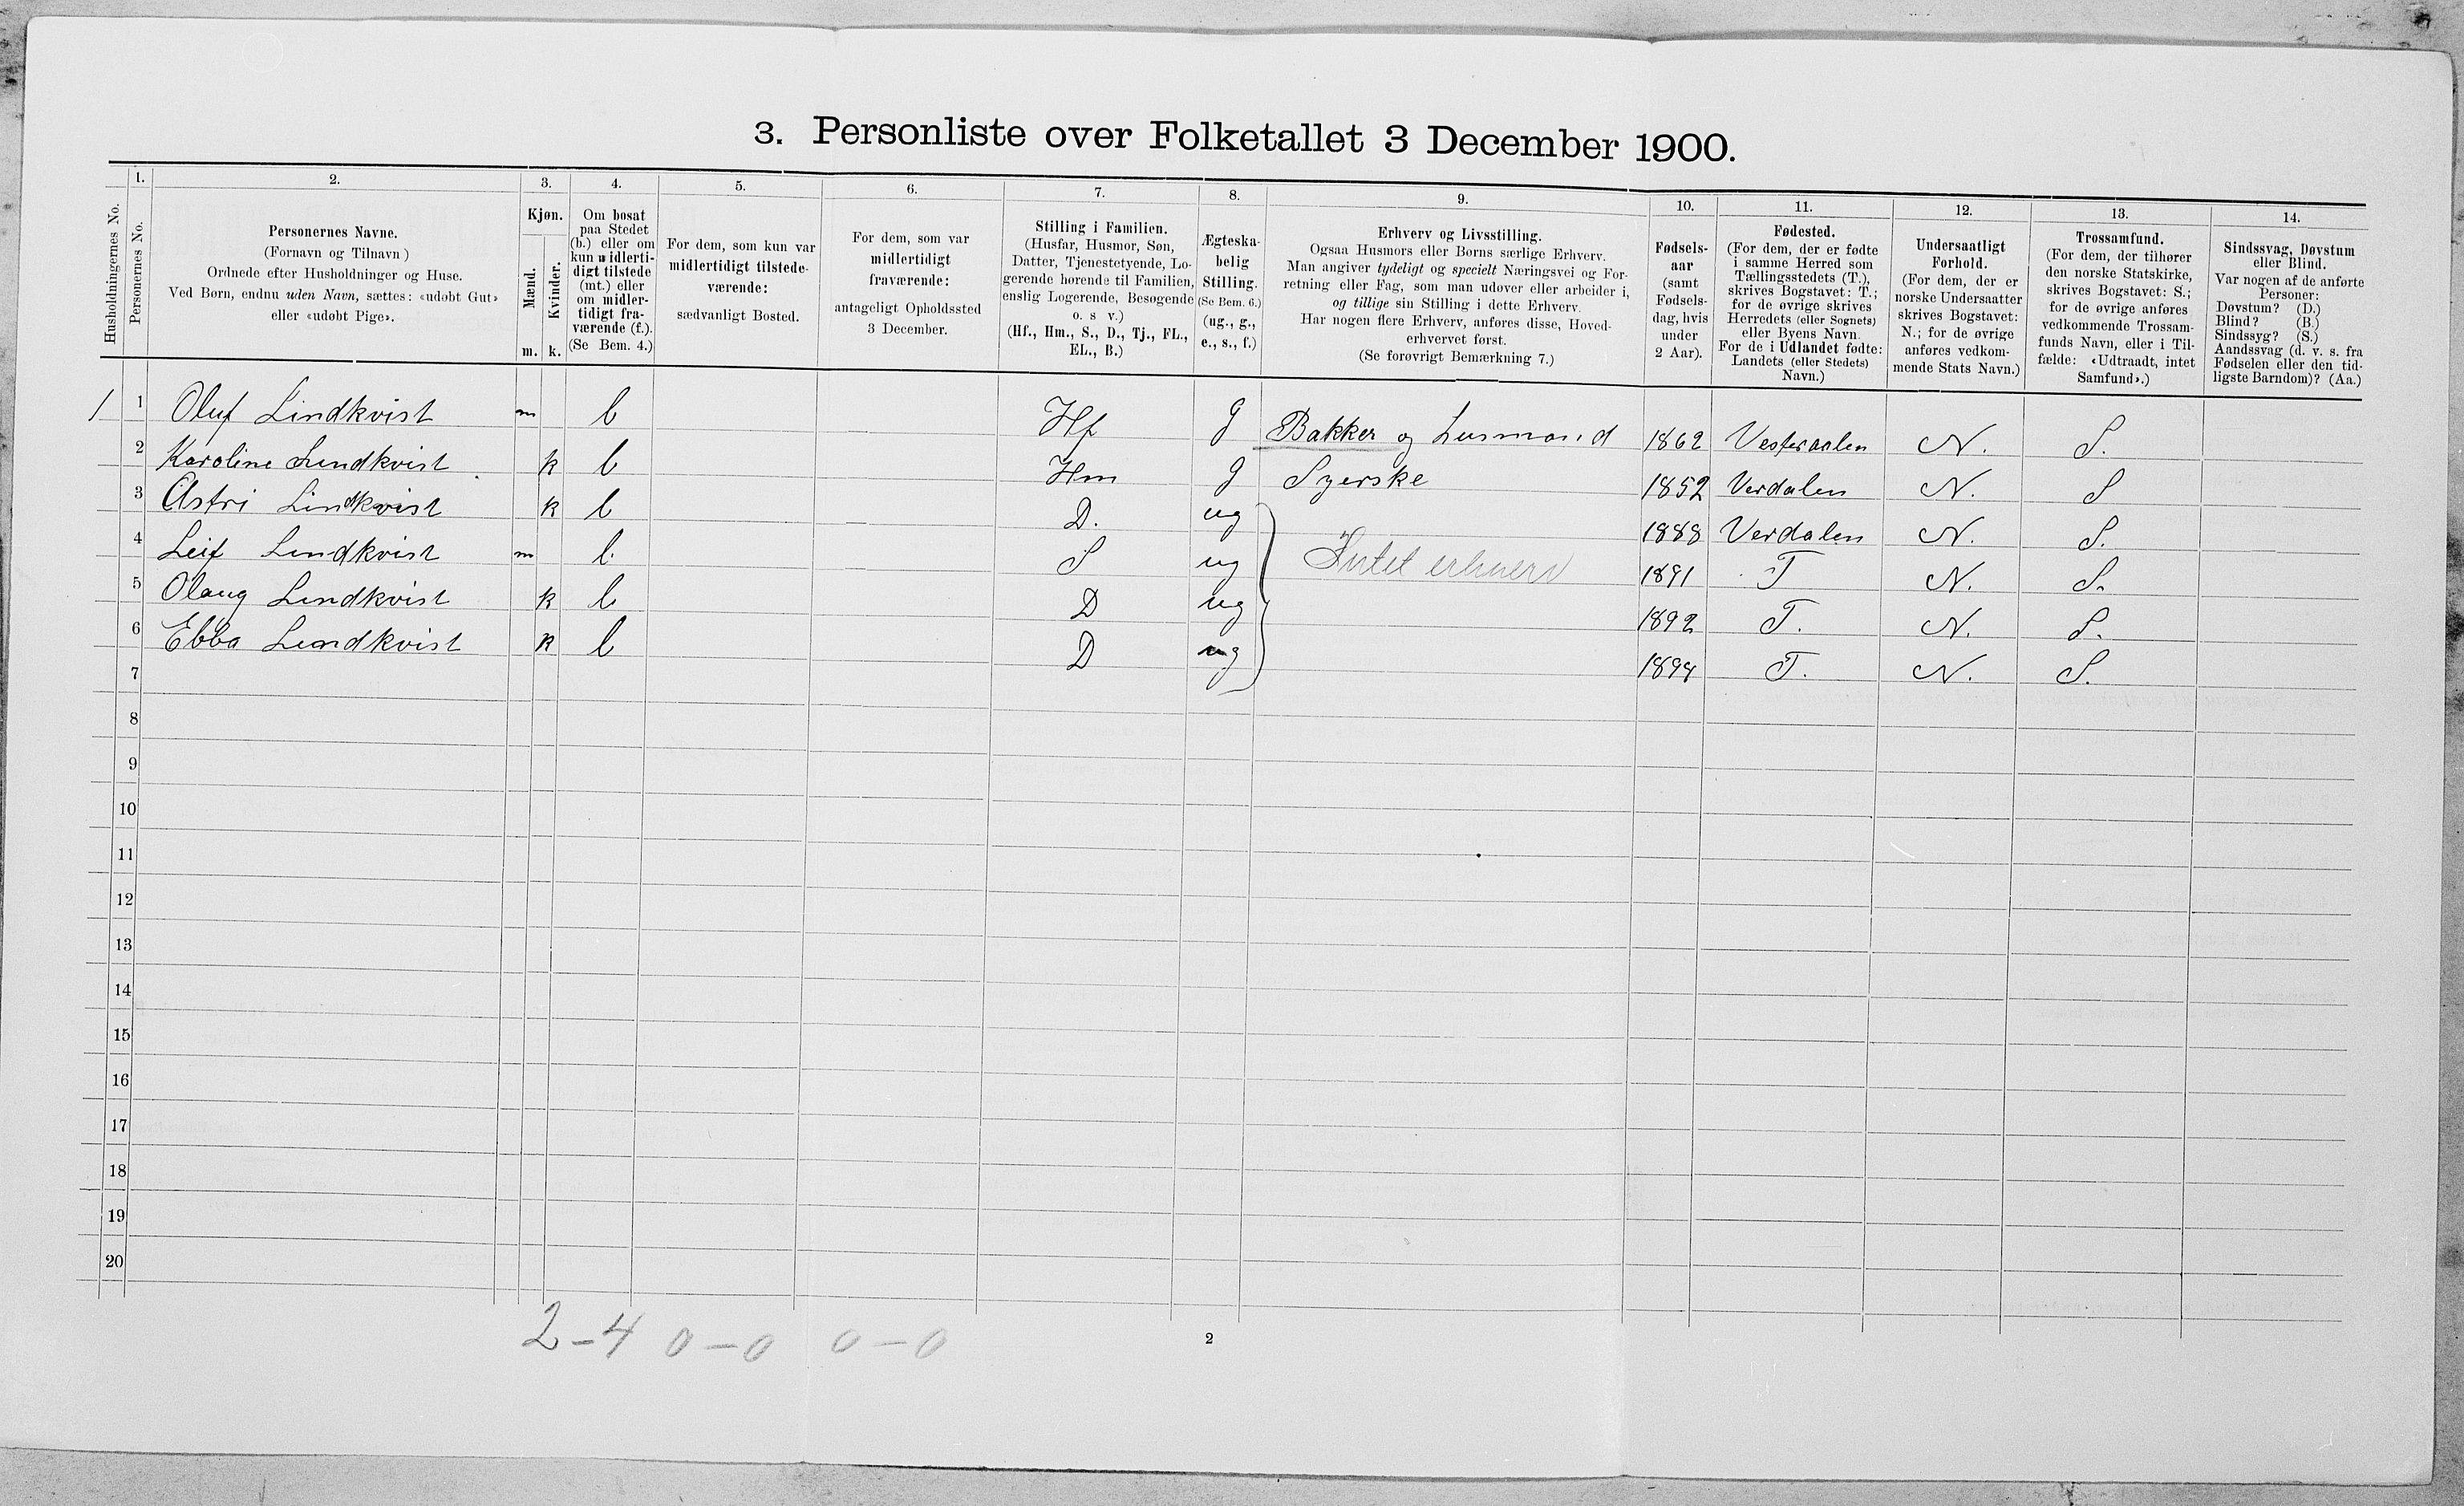 3. Personliste over Folketallet 3 December 1900.
Husholdningernes No.
1.
Personernes No.
2.
Personernes Navne.
(Fornavn og Tilnavn)
Ordnede efter Husholdninger og Huse.
Ved Børn, endnu uden Navn, sættes: «udøbt Gut»
eller «udøbt Pige».
3.
Kjøn.
Mænd.
Kvinder.
m. k.
4.
Om bosat
paa Stedet
(b.) eller om
kun midlerti-
digt tilstede
(mt.) eller
om midler-
tidigt fra-
værende (f.).
(Se Bem. 4.)
5.
For dem, som kun var
midlertidigt tilstede-
værende:
sædvanligt Bosted.
6.
For dem, som var
midlertidigt
fraværende:
antageligt Opholdssted
3 December.
7.
Stilling i Familien.
(Husfar, Husmor, Søn,
Datter, Tjenestetyende, Lo-
gerende hørende til Familien,
enslig Logerende, Besøgende
o. s v.)
(Hf., Hm., S., D., Tj., FL.,
EL., B.)
8.
Ægteska-
belig
Stilling.
(Se Bem. 6.)
(ug., g.,
e., s., f.)
9.
Erhverv og Livsstilling.
Ogsaa Husmors eller Børns særlige Erhverv.
Man angiver tydeligt og specielt Næringsvei og For-
retning eller Fag, som man udøver eller arbeider i,
og tillige sin Stilling i dette Erhverv.
Har nogen flere Erhverv, anføres disse, Hoved-
erhvervet først.
(Se forøvrigt Bemærkning 7.)
10.
Fødsels-
aar
(samt
Fødsels-
dag, hvis
under
2 Aar).
11.
Fødested.
(For dem, der er fødte
i samme Herred som
Tællingsstedets (T.),
skrives Bogstavet: T.;
for de øvrige skrives
Herredets (eller Sognets)
eller Byens Navn.
For de i Udlandet fødte:
Landets (eller Stedets)
Navn.)
12.
Undersaatligt
Forhold.
(For dem, der er
norske Undersaatter
skrives Bogstavet:
N.; for de øvrige
anføres vedkom-
mende Stats Navn.)
13.
Trossamfund.
(For dem, der tilhører
den norske Statskirke,
skrives Bogstavet: S.;
for de øvrige anføres
vedkommende Trossam-
funds Navn, eller i Til-
fælde: «Udtraadt, intet
Samfund».)
14.
Sindssvag, Døvstum
eller Blind.
Var nogen af de anførte
Personer:
Døvstum? (D.)
Blind? (B.)
Sindssyg? (S.)
Aandssvag (d. v. s. fra
Fødselen eller den tid-
ligste Barndom)? (Aa.)
1 1 Oluf Lindkvist m b Hf g Bakker og Lusmand 1862 Vesteraalen N. S.
2 Karoline Lindkvist k b Hm g Syerske 1852 Verdalen N. S
3 Astri Lindkvist k b D. ug 1888 Verdalen N. S.
4 Leif Lindkvist m b. S ug Intet erhverv 1891 T N. S.
5 Olaug Lindkvist k b D ug 1892 T. N. S.
6 Ebba Lindkvist k b D ug 1894 T. N. S.
7
8
9
10
11
12
13
14
15
16
17
18
19
20
2-4 0-0 0-0
2